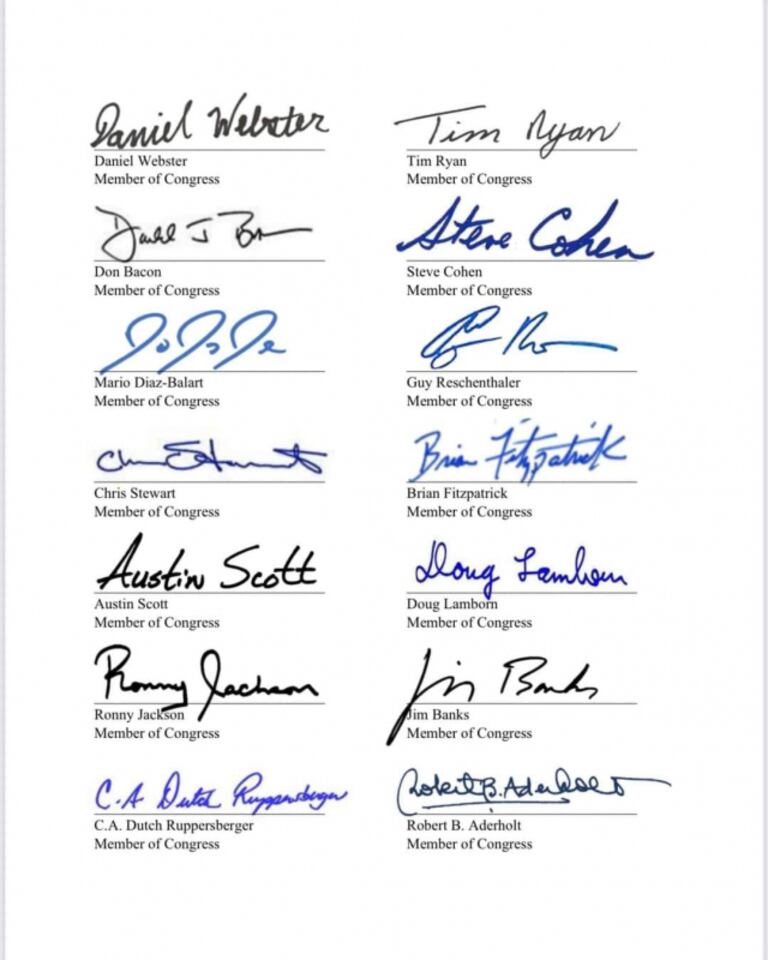 Daniel Webster
Tim Ryan
Daniel Webster
Tim Ryan
Member of Congress
Member of Congress
Steve Cohen
Don Bacon
Steve Cohen
Member of Congress
Member of Congress
Mario Diaz-Balart
Guy Reschenthaler
Member of Congress
Member of Congress
Brian Fitzpatrick
Chris Stewart
Brian Fitzpatrick
Member of Congress
Member of Congress
Austin Scott
Doug Lamborn
Austin Scott
Doug Lamborn
Member of Congress
Member of Congress
Ronny Jackson
Jim Banks
Ronny Jackson
Jim Banks
Member of Congress
Member of Congress
C.A Dutch Ruppersberger
Robert B. Aderholt
C.A. Dutch Ruppersberger
Robert B. Aderholt
Member of Congress
Member of Congress